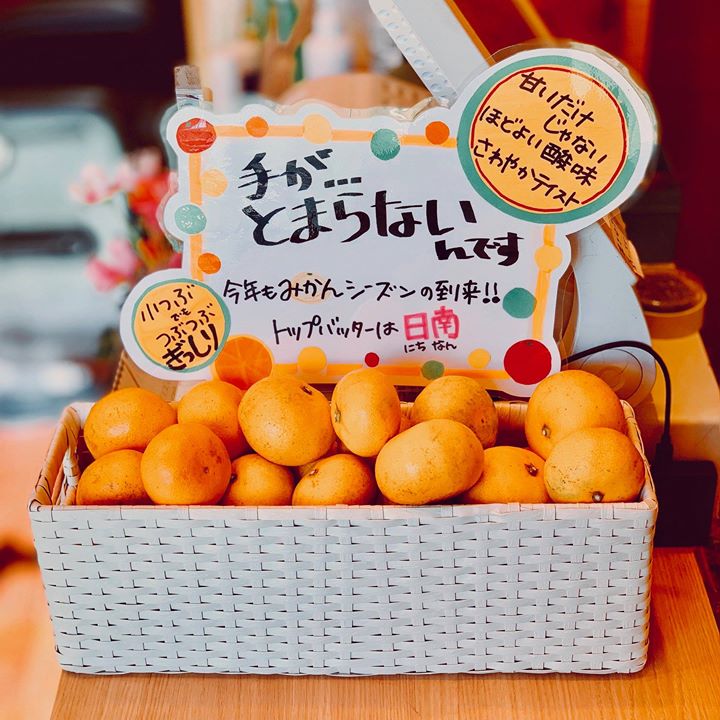 手が…
とまらない
んです
今年もみかんシーズンの到来!!
トップバッターは日南
にちなん
甘いだけ
じゃない
ほどよい酸味
さわやかテイスト
小つぶ
でも
つぶつぶ
ぎっしり